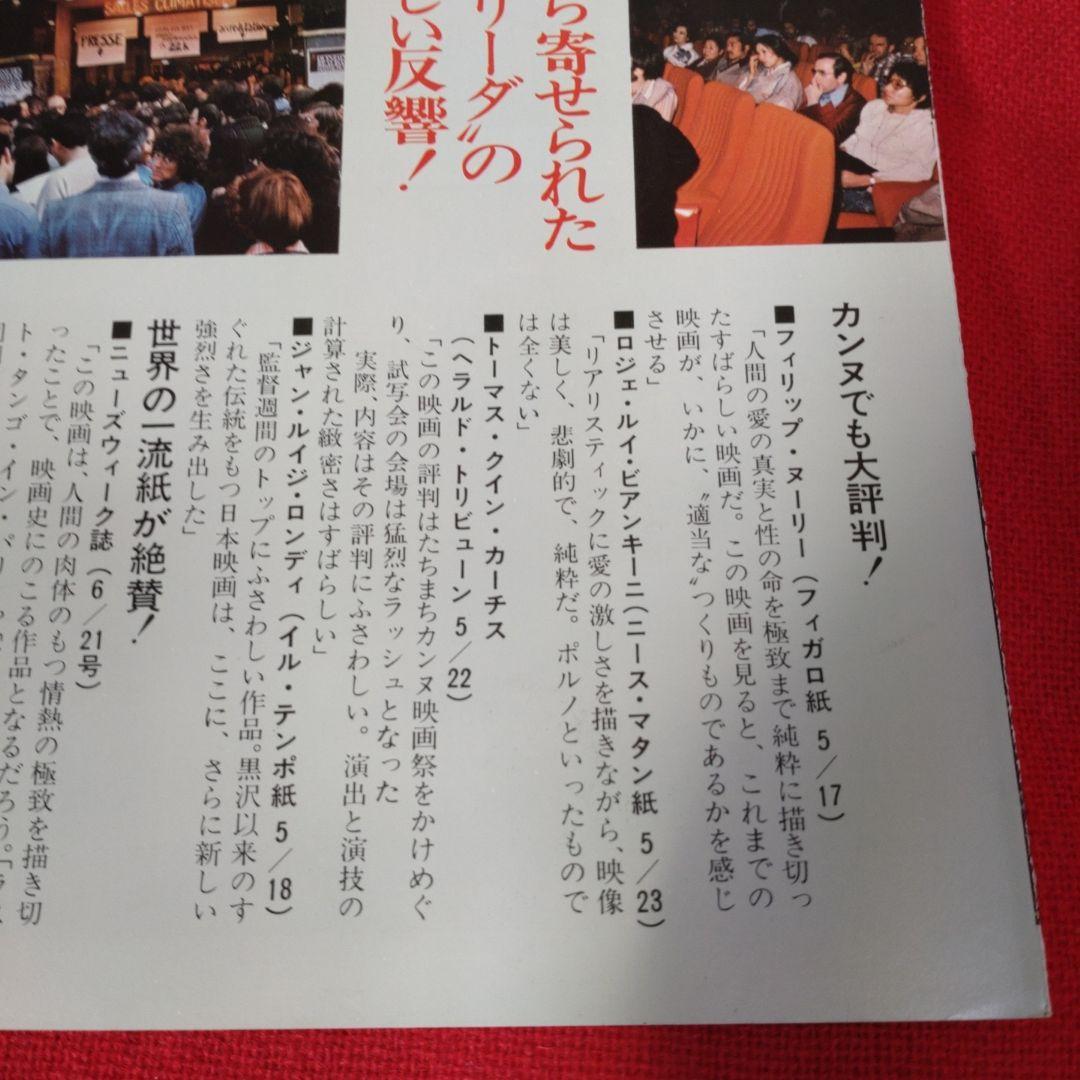 SALLES CLIMATISÉES
PRESSE
22h
ら寄せられた
リーダ〟の
しい反響！
カンヌでも大評判！
■フィリップ・ヌーリー（フィガロ紙 5／17）
「人間の愛の真実と性の命を極致まで純粋に描き切っ
たすばらしい映画だ。この映画を見ると、これまでの
映画が、いかに、〝適当な〟つくりものであるかを感じ
させる」
■ロジェ・ルイ・ビアンキーニ（ニース・マタン紙 5／23）
「リアリスティックに愛の激しさを描きながら、映像
は美しく、悲劇的で、純粋だ。ポルノといったもので
は全くない」
■トーマス・クイン・カーチス
（ヘラルド・トリビューン 5／22）
「この映画の評判はたちまちカンヌ映画祭をかけめぐ
り、試写会の会場は猛烈なラッシュとなった
実際、内容はその評判にふさわしい。演出と演技の
計算された緻密さはすばらしい」
■ジャン・ルイジ・ロンディ（イル・テンポ紙 5／18）
「監督週間のトップにふさわしい作品。黒沢以来のす
ぐれた伝統をもつ日本映画は、ここに、さらに新しい
強烈さを生み出した」
世界の一流紙が絶賛！
■ニューズウィーク誌（6／21号）
「この映画は、人間の肉体のもつ情熱の極致を描き切
ったことで、映画史にのこる作品となるだろう。「ラス
ト・タンゴ・イン・パリ